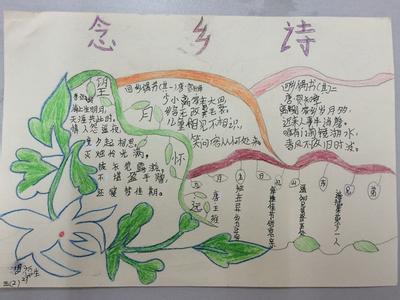 念 乡 诗
望月怀远
海上生明月,
天涯共此时。
情人怨遥夜,
竟夕起相思。
灭烛怜光满,
披衣觉露滋。
不堪盈手赠,
还寝梦佳期。
回乡偶书(其一)唐·贺知章
少小离家老大回
乡音无改鬓毛衰
儿童相见不相识
笑问客从何处来
回乡偶书(其二)
唐·贺知章
离别家乡岁月多
近来人事半消磨
唯有门前镜湖水
春风不改旧时波
九月九日忆山东兄弟
唐王维
独在异乡为异客
每逢佳节倍思亲
遥知兄弟登高处
遍插茱萸少一人
三(2)